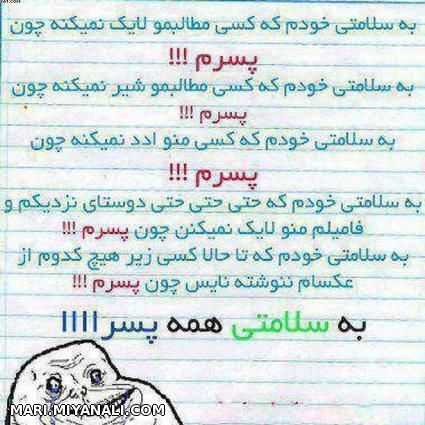 به سلامتی خودم که کسی مطالبمو لایک نمیکنه چون
پسرم !!!
به سلامتی خودم که کسی مطالبمو شیر نمیکنه چون
پسرم !!!
به سلامتی خودم که کسی منو ادد نمیکنه چون
پسرم !!!
به سلامتی خودم که حتی حتی حتی دوستای نزدیکم و
فامیلم منو لایک نمیکنن چون پسرم !!!
به سلامتی خودم که تا حالا کسی زیر هیچ کدوم از
عکسام ننوشته نایس چون پسرم !!!
به سلامتی همه پسراااا
MARI.MIYANALI.COM